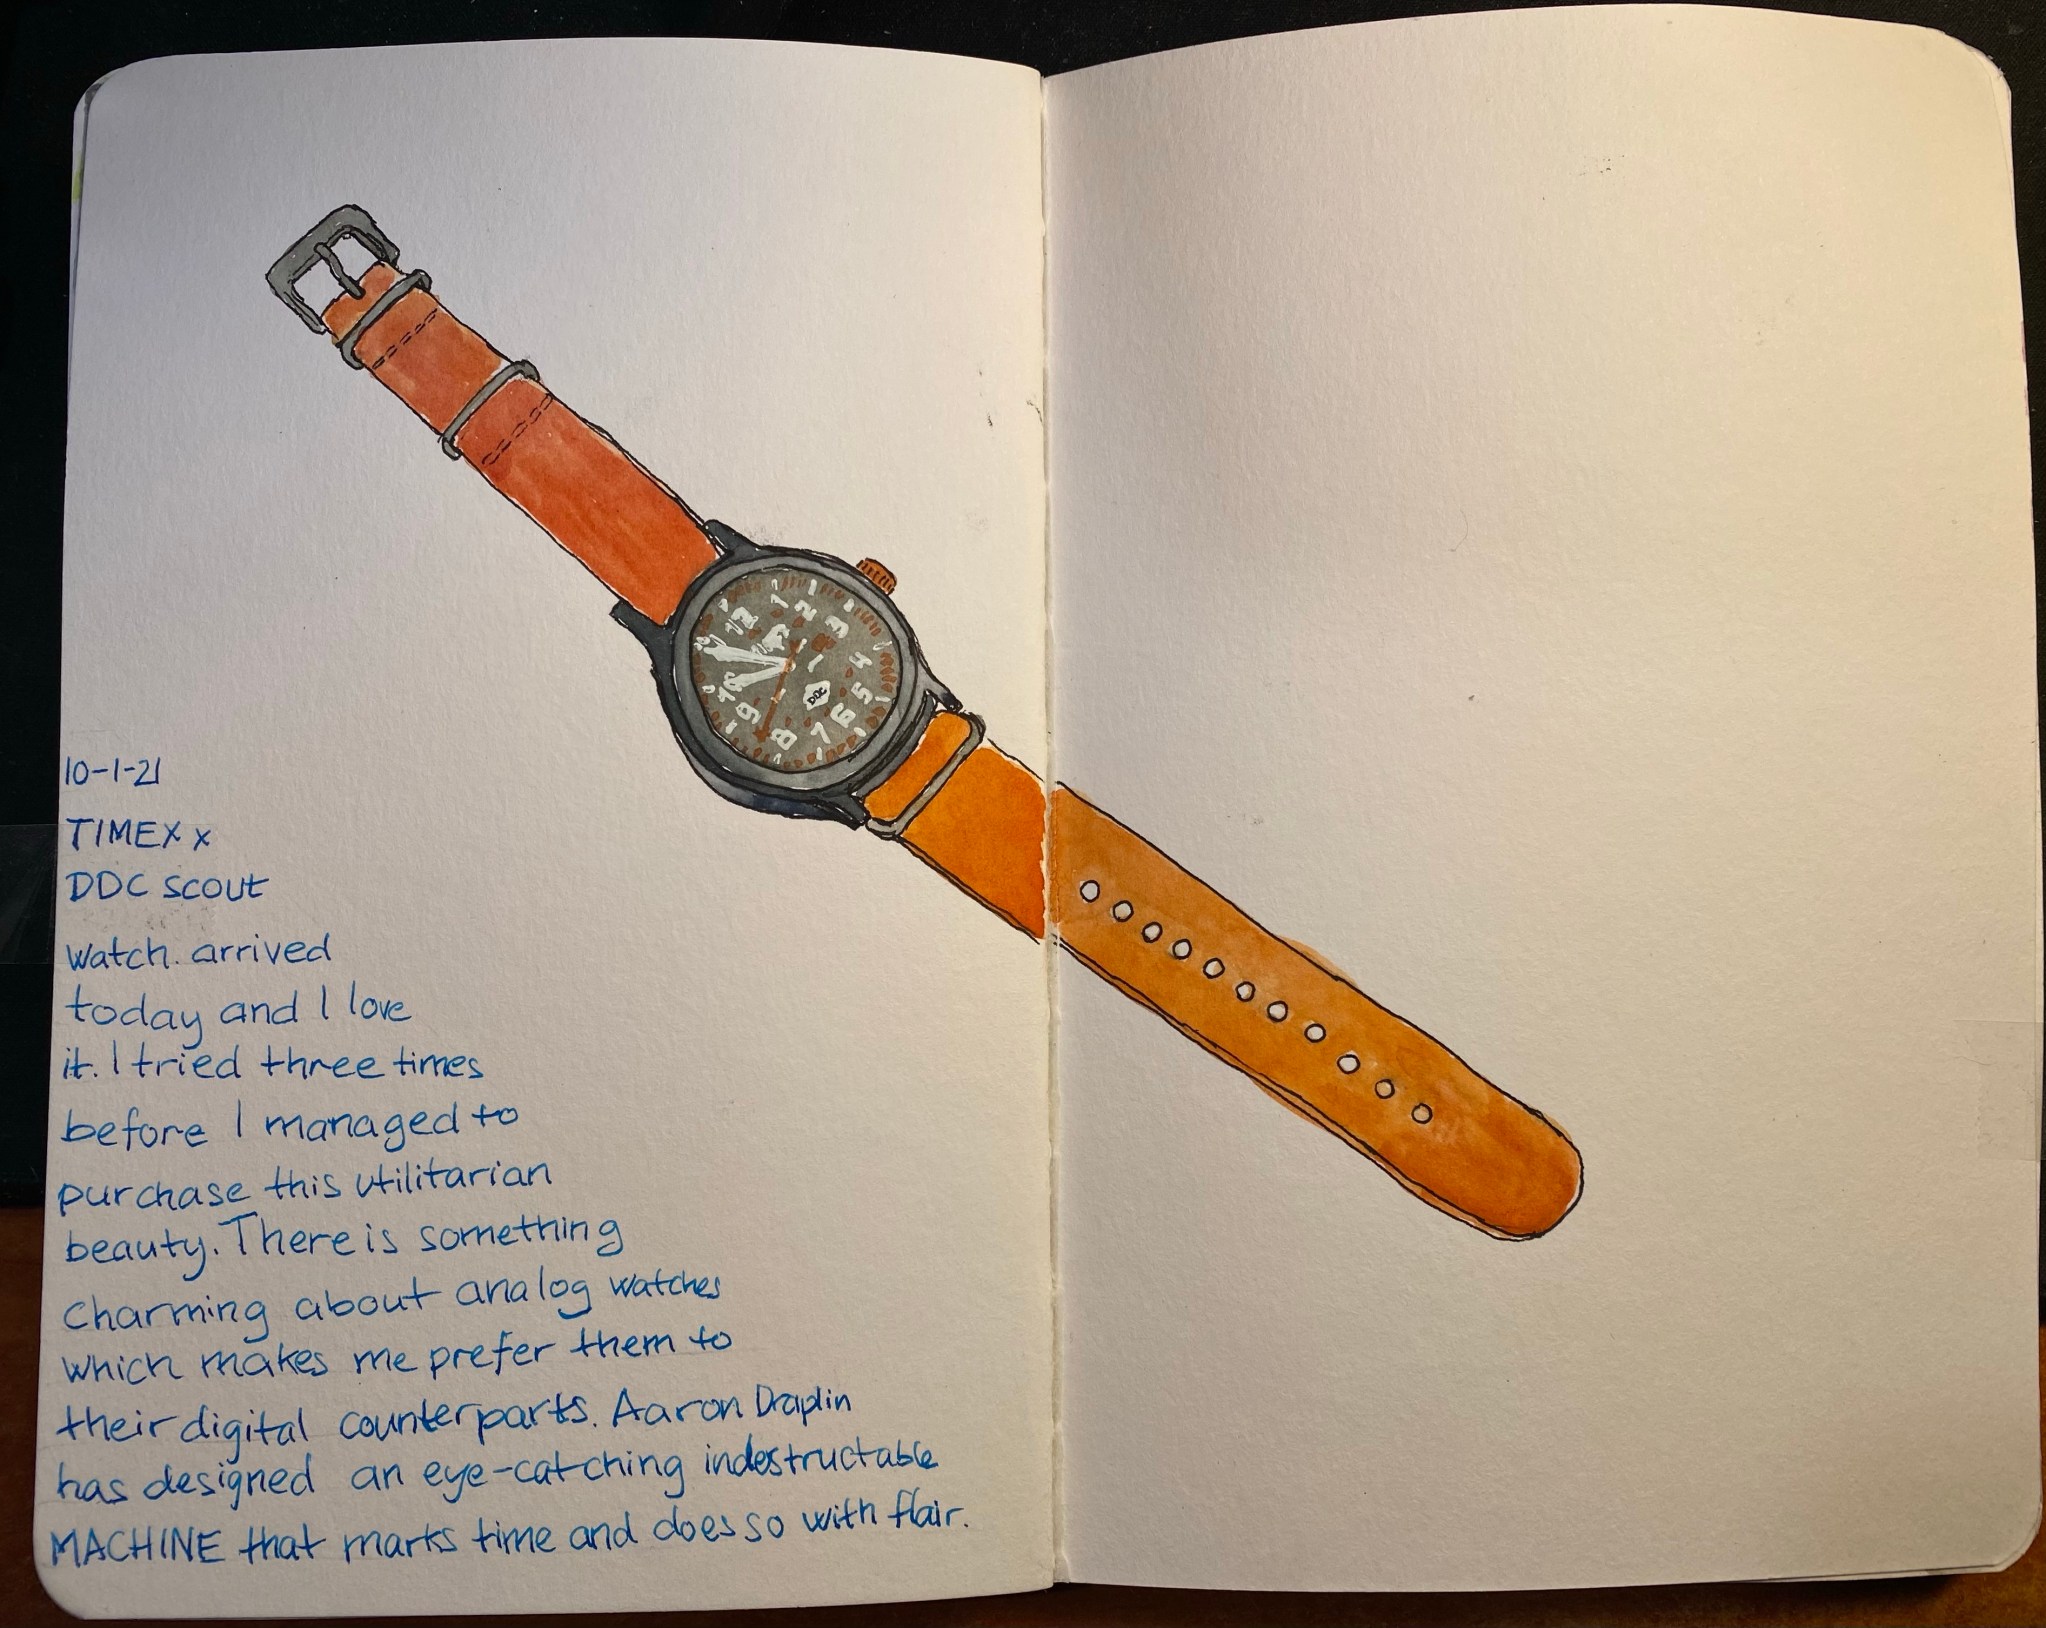 12
1
2
3
4
5
6
7
8
9
10
DDC
10-1-21
TIMEX x
DDC scout
watch. arrived
today and I love
it. I tried three times
before I managed to
purchase this utilitarian
beauty. There is something
charming about analog watches
which makes me prefer them to
their digital counterparts. Aaron Draplin
has designed an eye-catching indestructable
MACHINE that marks time and does so with flair.